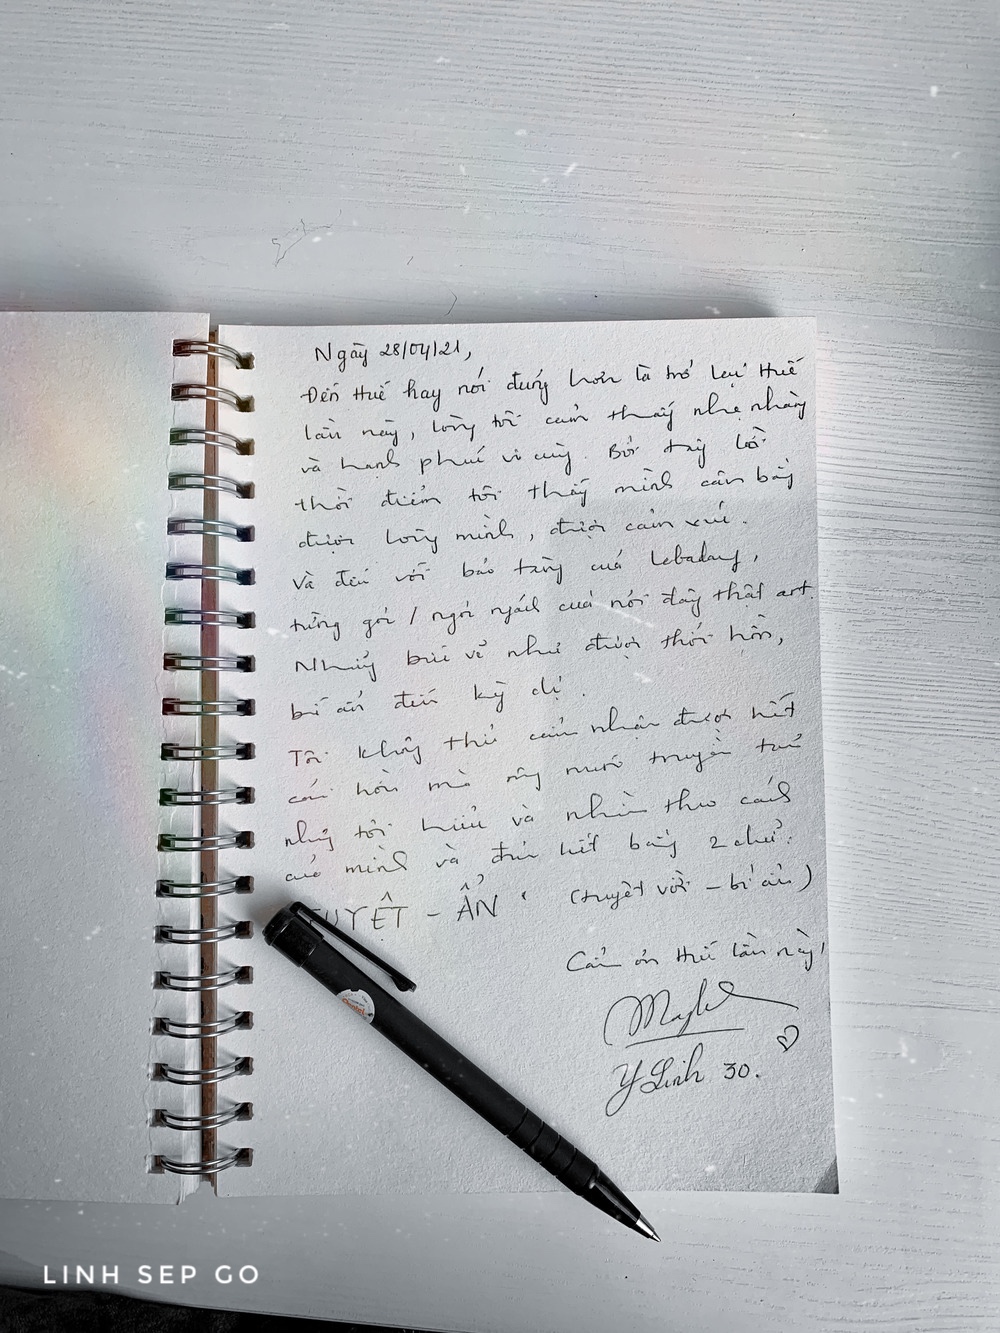 Ngày 28/04/21,
Đến Huế hay nói đúng hơn là trở lại Huế
lần này, lòng tôi cảm thấy nhẹ nhàng
và hạnh phúc vô cùng. Bởi đây là
thời điểm tôi thấy mình cân bằng
được lòng mình, được cảm xúc.
Và đến với bảo tàng của Lebadang,
từng gói / ngói của nơi đây thật art.
Những bức vẽ như được thổi hồn,
bí ẩn đến kỳ dị.
Tôi không thể cảm nhận được hết
cái hồn mà ông muốn truyền tải
nhưng tôi hiểu và nhìn theo cách
của mình và đúc kết bằng 2 chữ:
TUYỆT - ẨN (tuyệt vời - bí ẩn)
Cảm ơn Huế lần này!
Y Linh 30.
LINH SEP GO